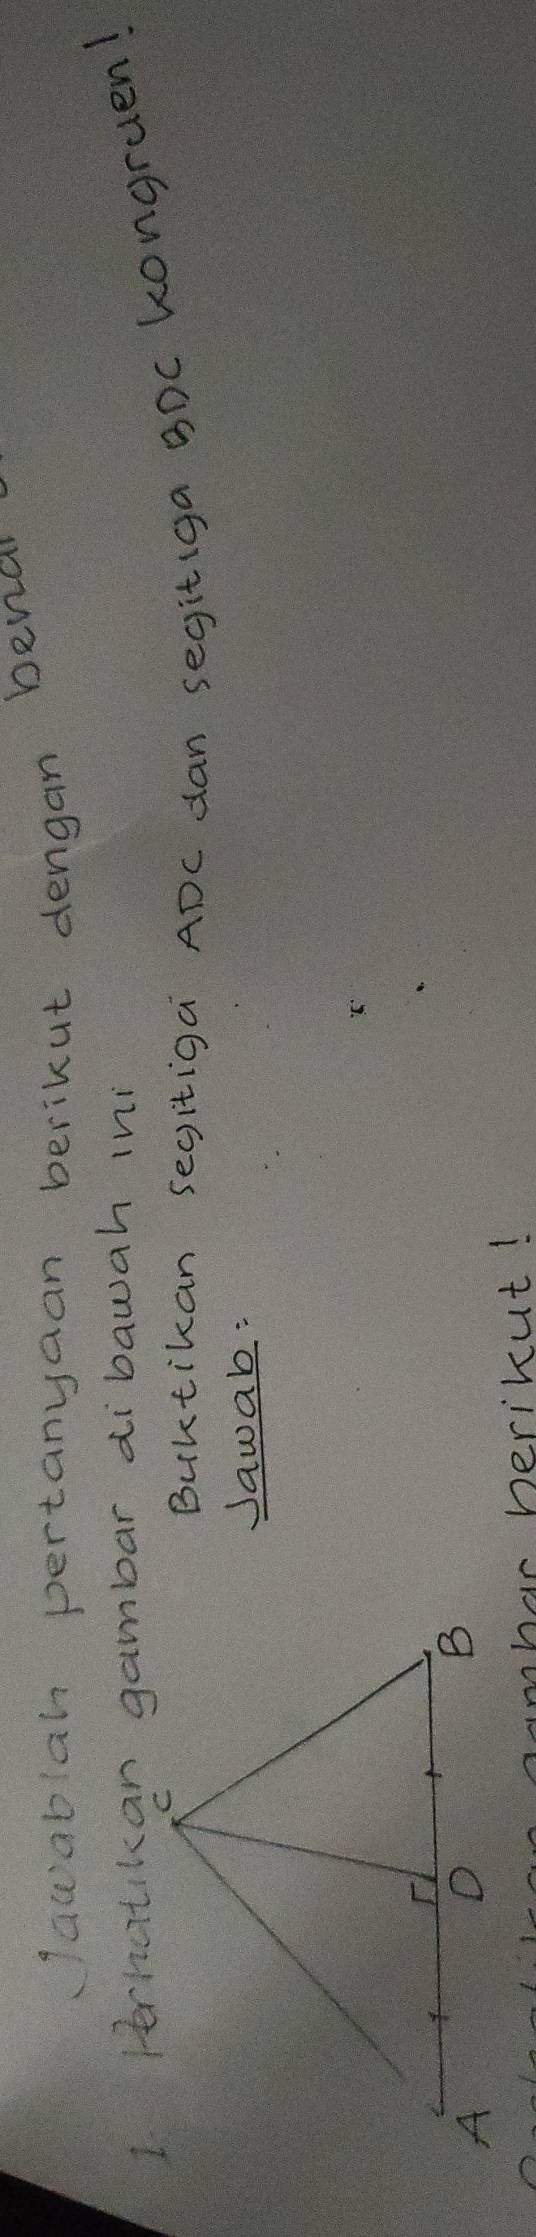 Jawablah pertanyaan berikut dengan benar
1. Perhatikan gambar di bawah ini
Buktikan segitiga ADC dan segitiga BDC kongruen!
Jawab:
C
A D B
gambar berikut!